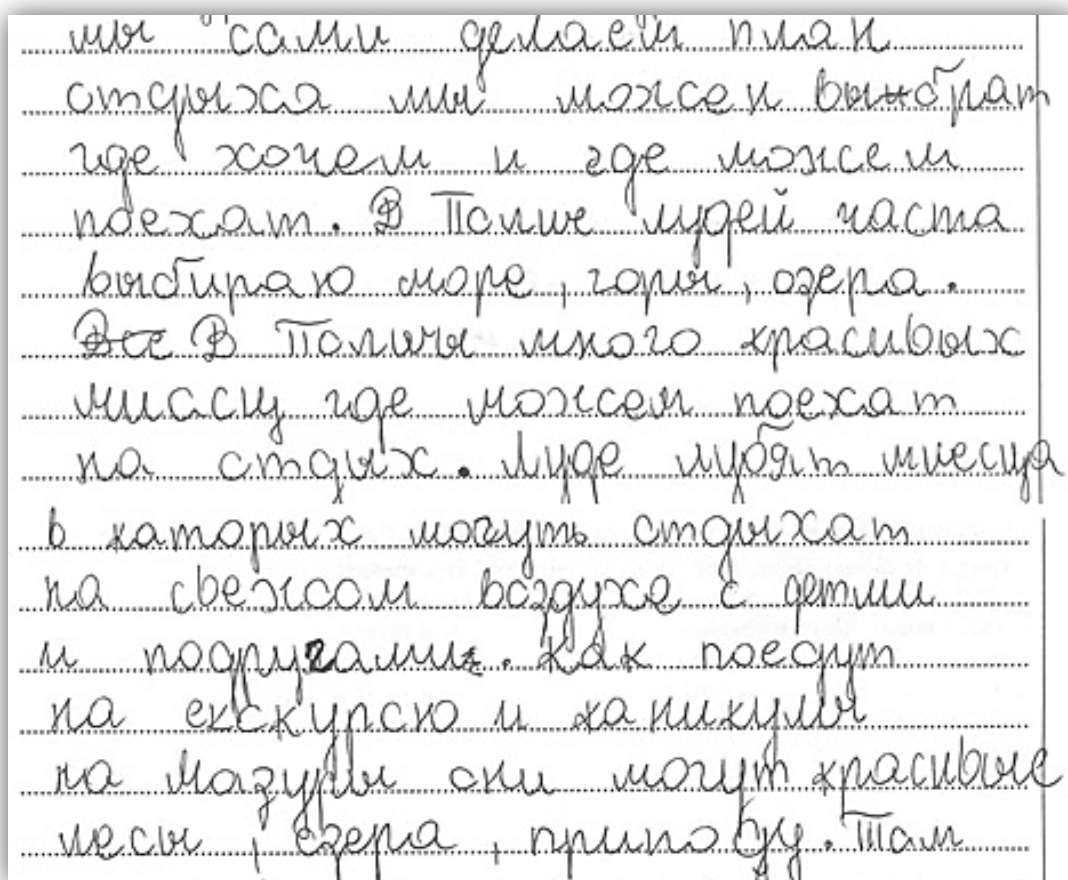 мы сами делаем план
отдыха мы можем выбрат
где хочем и где можем
поехат. В Полше лудей часта
выбираю море, горы, озера.
Все В Полшчы много красивых
миасцц где можем поехат
на отдых. Луде лубят миесца
в каторых могуть отдыхат
на свежом воздухе с детми
и подругами. Как поедут
на екскурсю и каникулы
на Мазуры они могут красивые
лесы, езера, пр Там